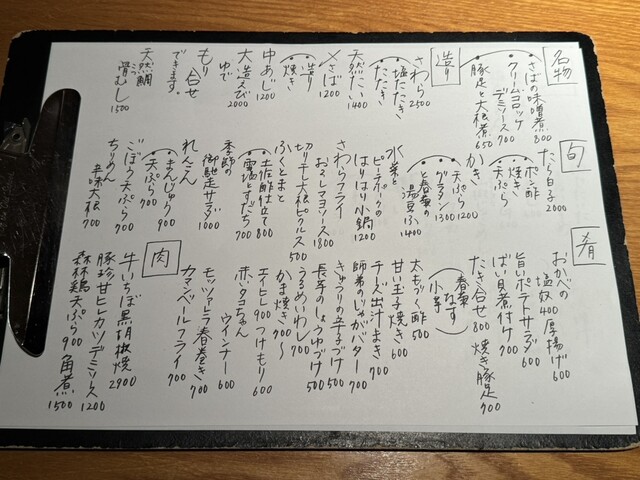 名物
さばの味噌煮 800
クリームコロッケ
デミソース 700
豚足と大根煮 650
造り
さわら 2500
塩たたき
たたき
天然たい 1400
〆さば 1200
造り
焼き
中あじ 1200
大造えび 2000
ゆで
もり合せ
できます。
天然鯛
こつ
骨むし 1500
旬
たら白子 2000
ポン酢
焼き
天ぷら
かき
天ぷら 1200
グラタン 1300
と春菊の
湯豆ふ 1400
水菜と
ピーポークの
はりはり小鍋 1200
さわらフライ
おろしマヨソース 1800
切り干大根ピクルス 500
ふぐとまと
土佐酢仕立て 800
雲丹とすだち 700
季節の
御馳走サラダ 1000
れんこん
まんじゅう 900
天ぷら 700
ごぼう天ぷら 700
ちりめん
辛味大根 700
肴
おかべの
塩奴 400 厚揚げ 600
旨いポテトサラダ 600
ばい貝煮付け 700
たき合せ 800 焼き豚足 700
春菊
なす
小芋
太もずく酢 500
甘い玉子焼き 600
チーズ出汁まき 700
師弟のじゃがバター 700
きゅうりの辛子づけ 500
長芋のしょうゆづけ 500
うるめいわし 700
かま焼き 700〜
エイヒレ 900 つけもり 600
赤いタコちゃん
ウインナー 600
モッツァレラ春巻き 700
カマンベールフライ 700
肉
牛いちぼ黒胡椒焼 2900
豚珍甘ヒレカツデミソース 1200
森林鶏天ぷら 900 角煮 1500